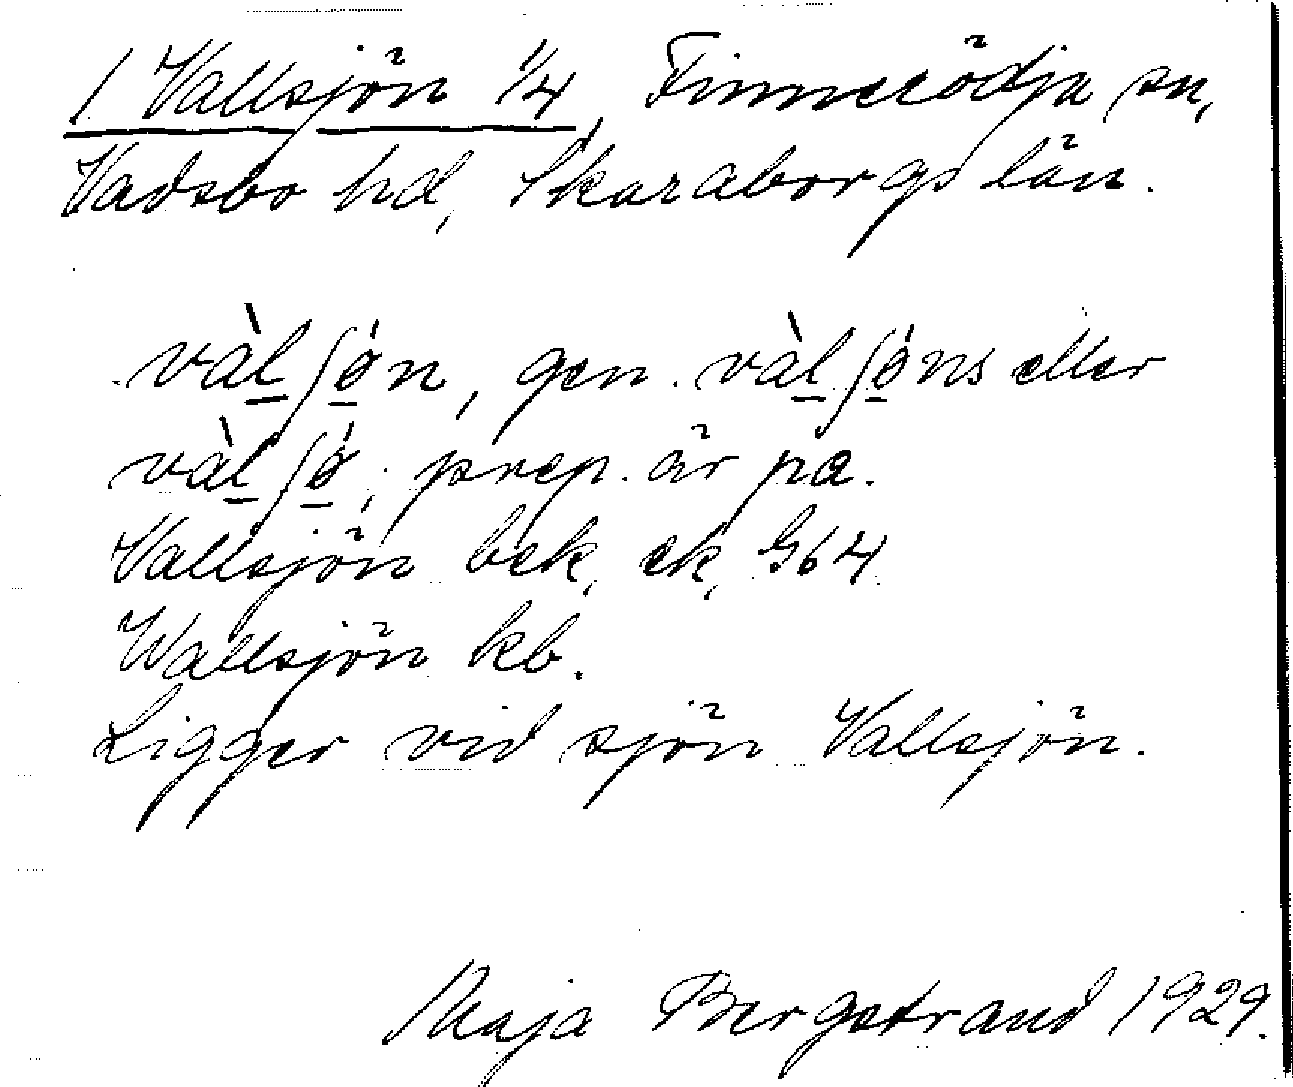 1 Vallsjön 1/4, Finnerödja sn,
Vadsbo hd, Skaraborgs län.
vàl̲ʃǿ̲n, gen. vàl̲ʃǿ̲ns eller
vàl̲ʃǿ̲; prep. är på.
Vallsjön bek, ek, G64
Wallsjön kb.
Ligger vid sjön Vallsjön.
Maja Bergstrand 1929.